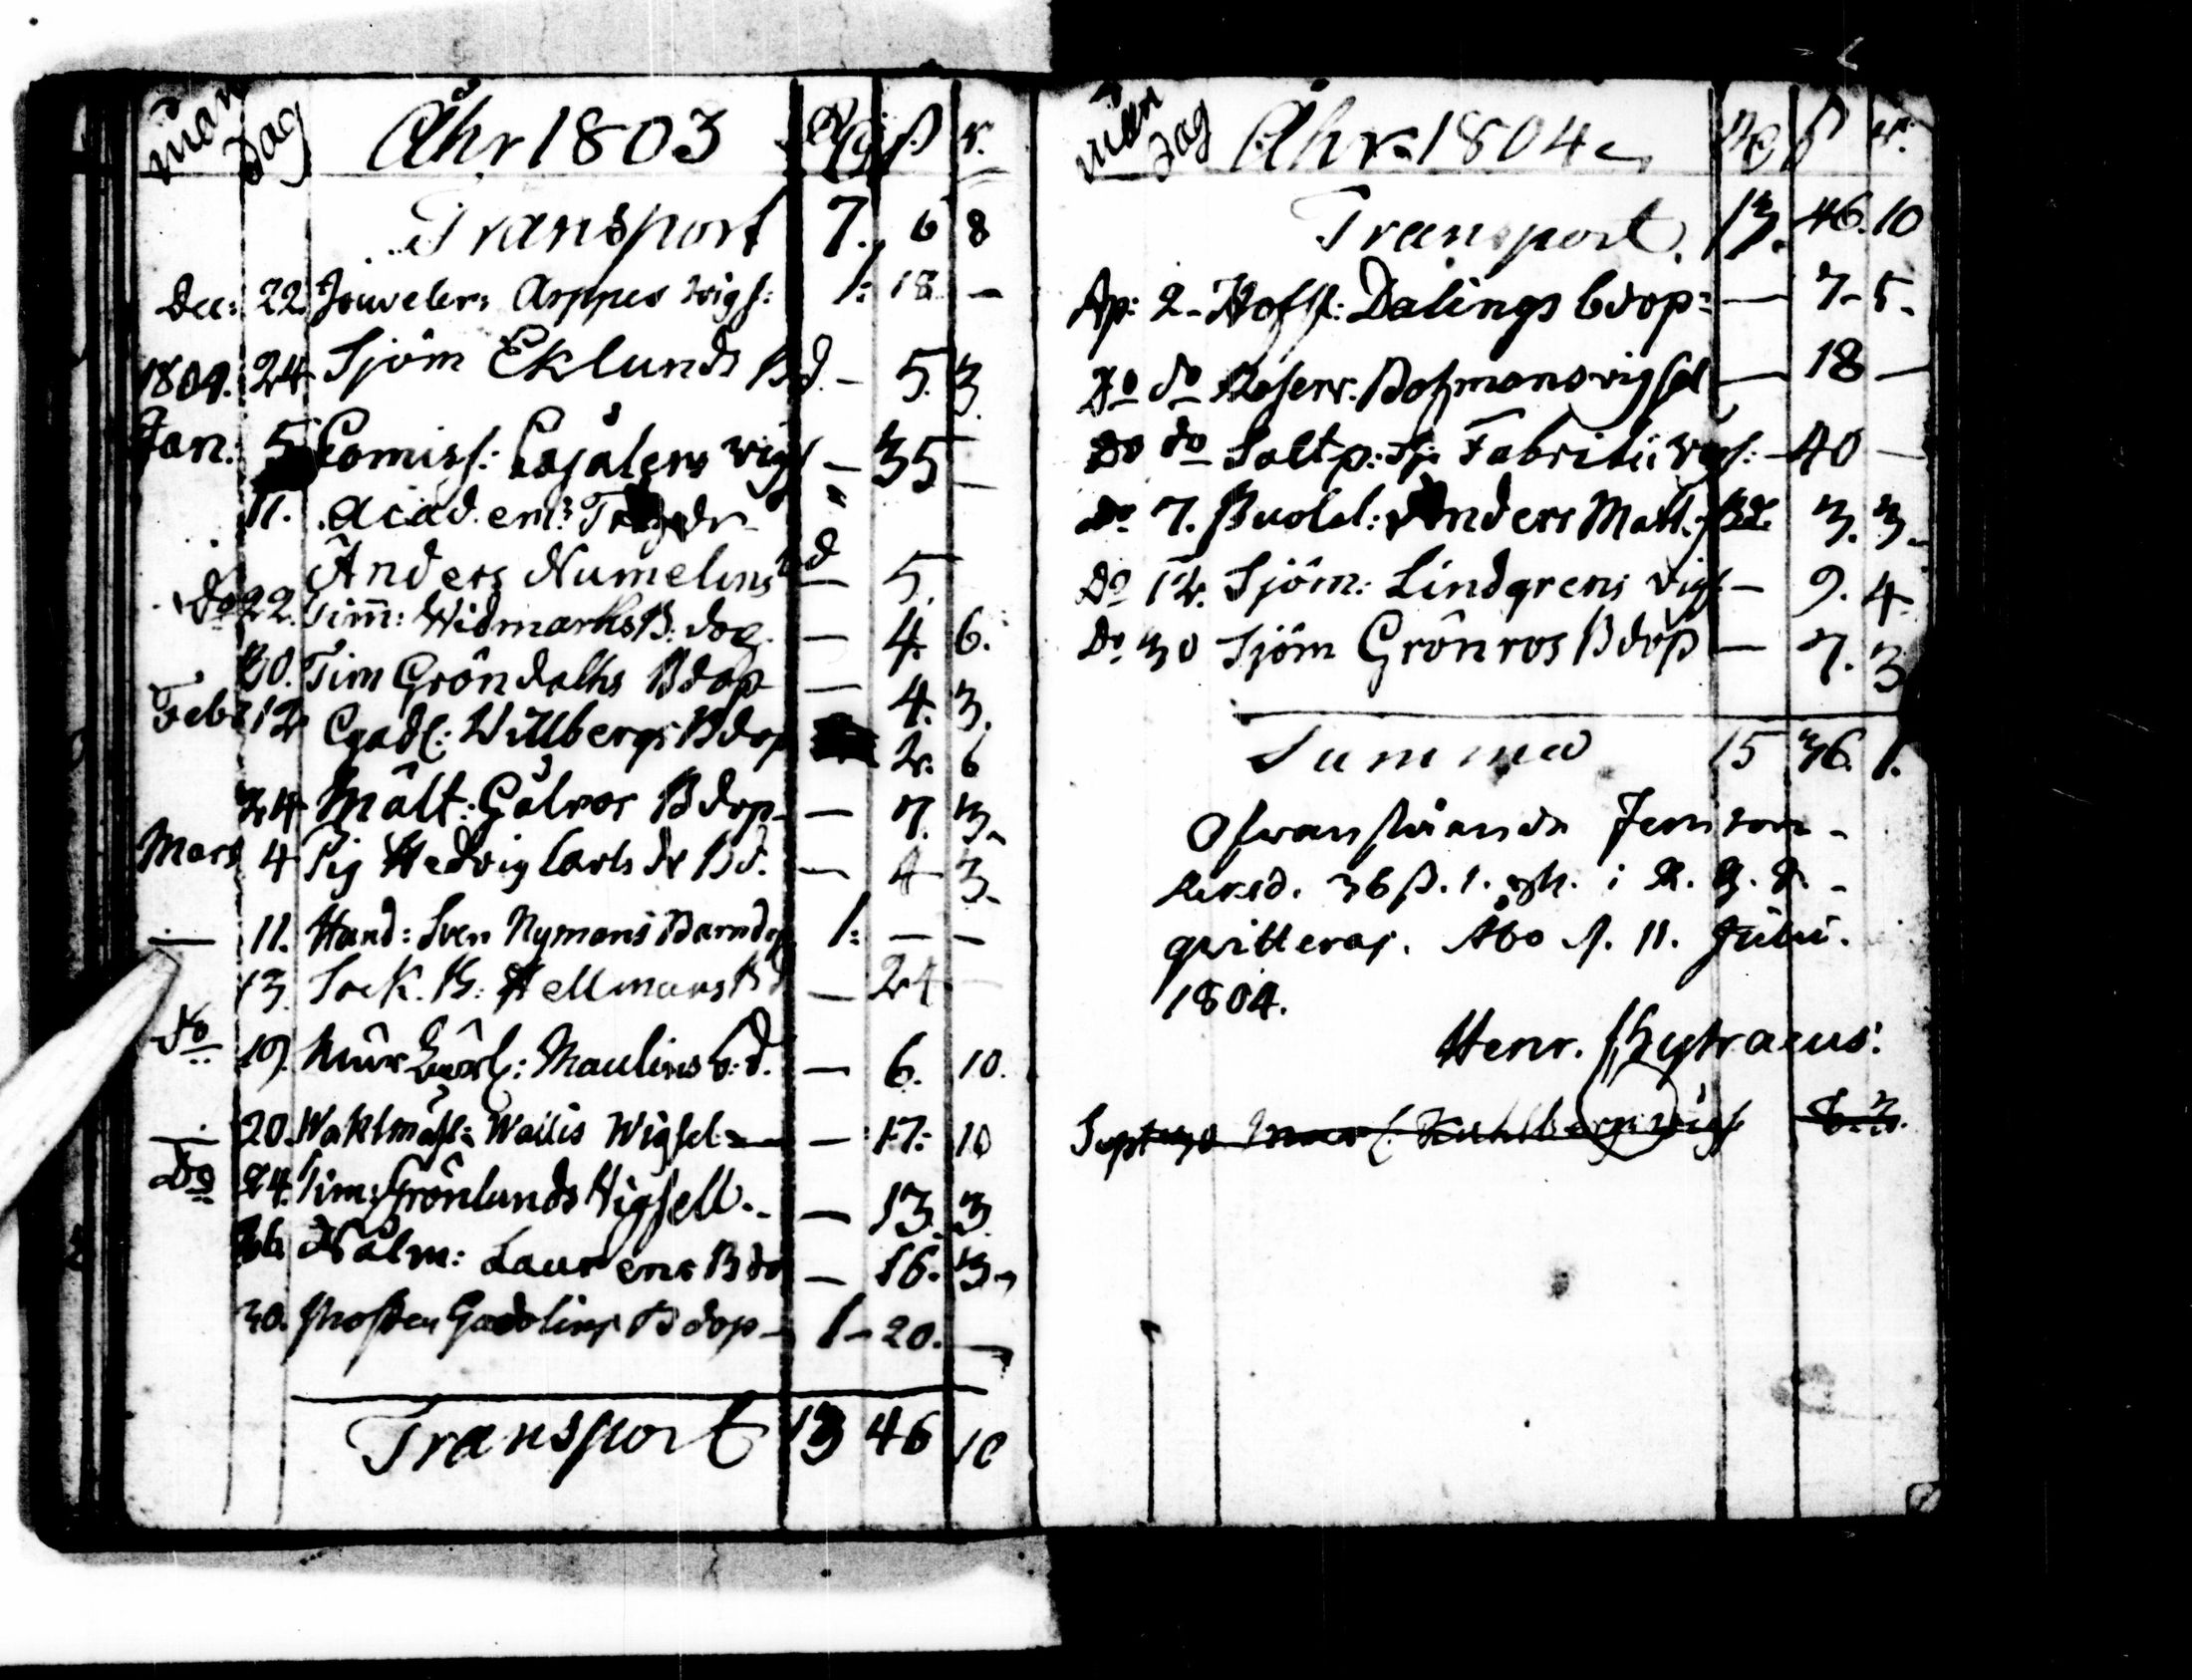 mån dag Åhr 1803 Rg ß r.
Transport 7. 6 8
Dec: 22. Jouveler: Arppes wigs: 1: 18 —
1804. 24 Sjöm Eklunds Bd. — 5. 3
Jan: 5 Comiss: Cajalens vigs — 35 —
11. Acad. en:
Anders Numelins bd — 5.
Do 22. Tim̄: Widmarks B. dop. — 4. 6.
30. Tim Gröndahls Bdop — 4. 3.
Feb: 12 Willbergs Bdop 2. 6
24 Mált: Bdop — 7. 3.
Mars 4 Pig Hedvig Carls dr Bd. — 4 3.
— 11. Hand: Sven Nymans Barndop 1: — —
13. Sock. B: Hellmans Bd — 24 —
Do 19. Maulins b:d. — 6. 10.
— 20. Waktmäst: Wallis Wigsel — 17: 10
Do 24. Tim: Grönlunds Vigsell. — 13. 3.
26 Laurens Bdo — 16. 3.
30. Prosten Gadolins Bdop — 1 - 20. —
Transport 13 46 10
mån dag Åhr 1804 ß r.
Transport. 13. 46. 10
Ap: 2 - Dalings bdop: — 7 - 5.
Do do vigsel — 18 —
Do do Fabritii vigs: — 40 —
Do 7. Anders Matt: Bd. 3. 3.
Do 12. Sjöm: Lindgrens vigs — 9. 4.
Do 30 Sjöm Grönros Bdop — 7. 3
Summa 15 36. 1.
Ofwanstående Femton
Riksd. 36 ß. 1. i R. G. S.
qvitteras. Åbo d. 11. Julii.
1804.
Henr. Chytraeus.
Sept 30 vigs